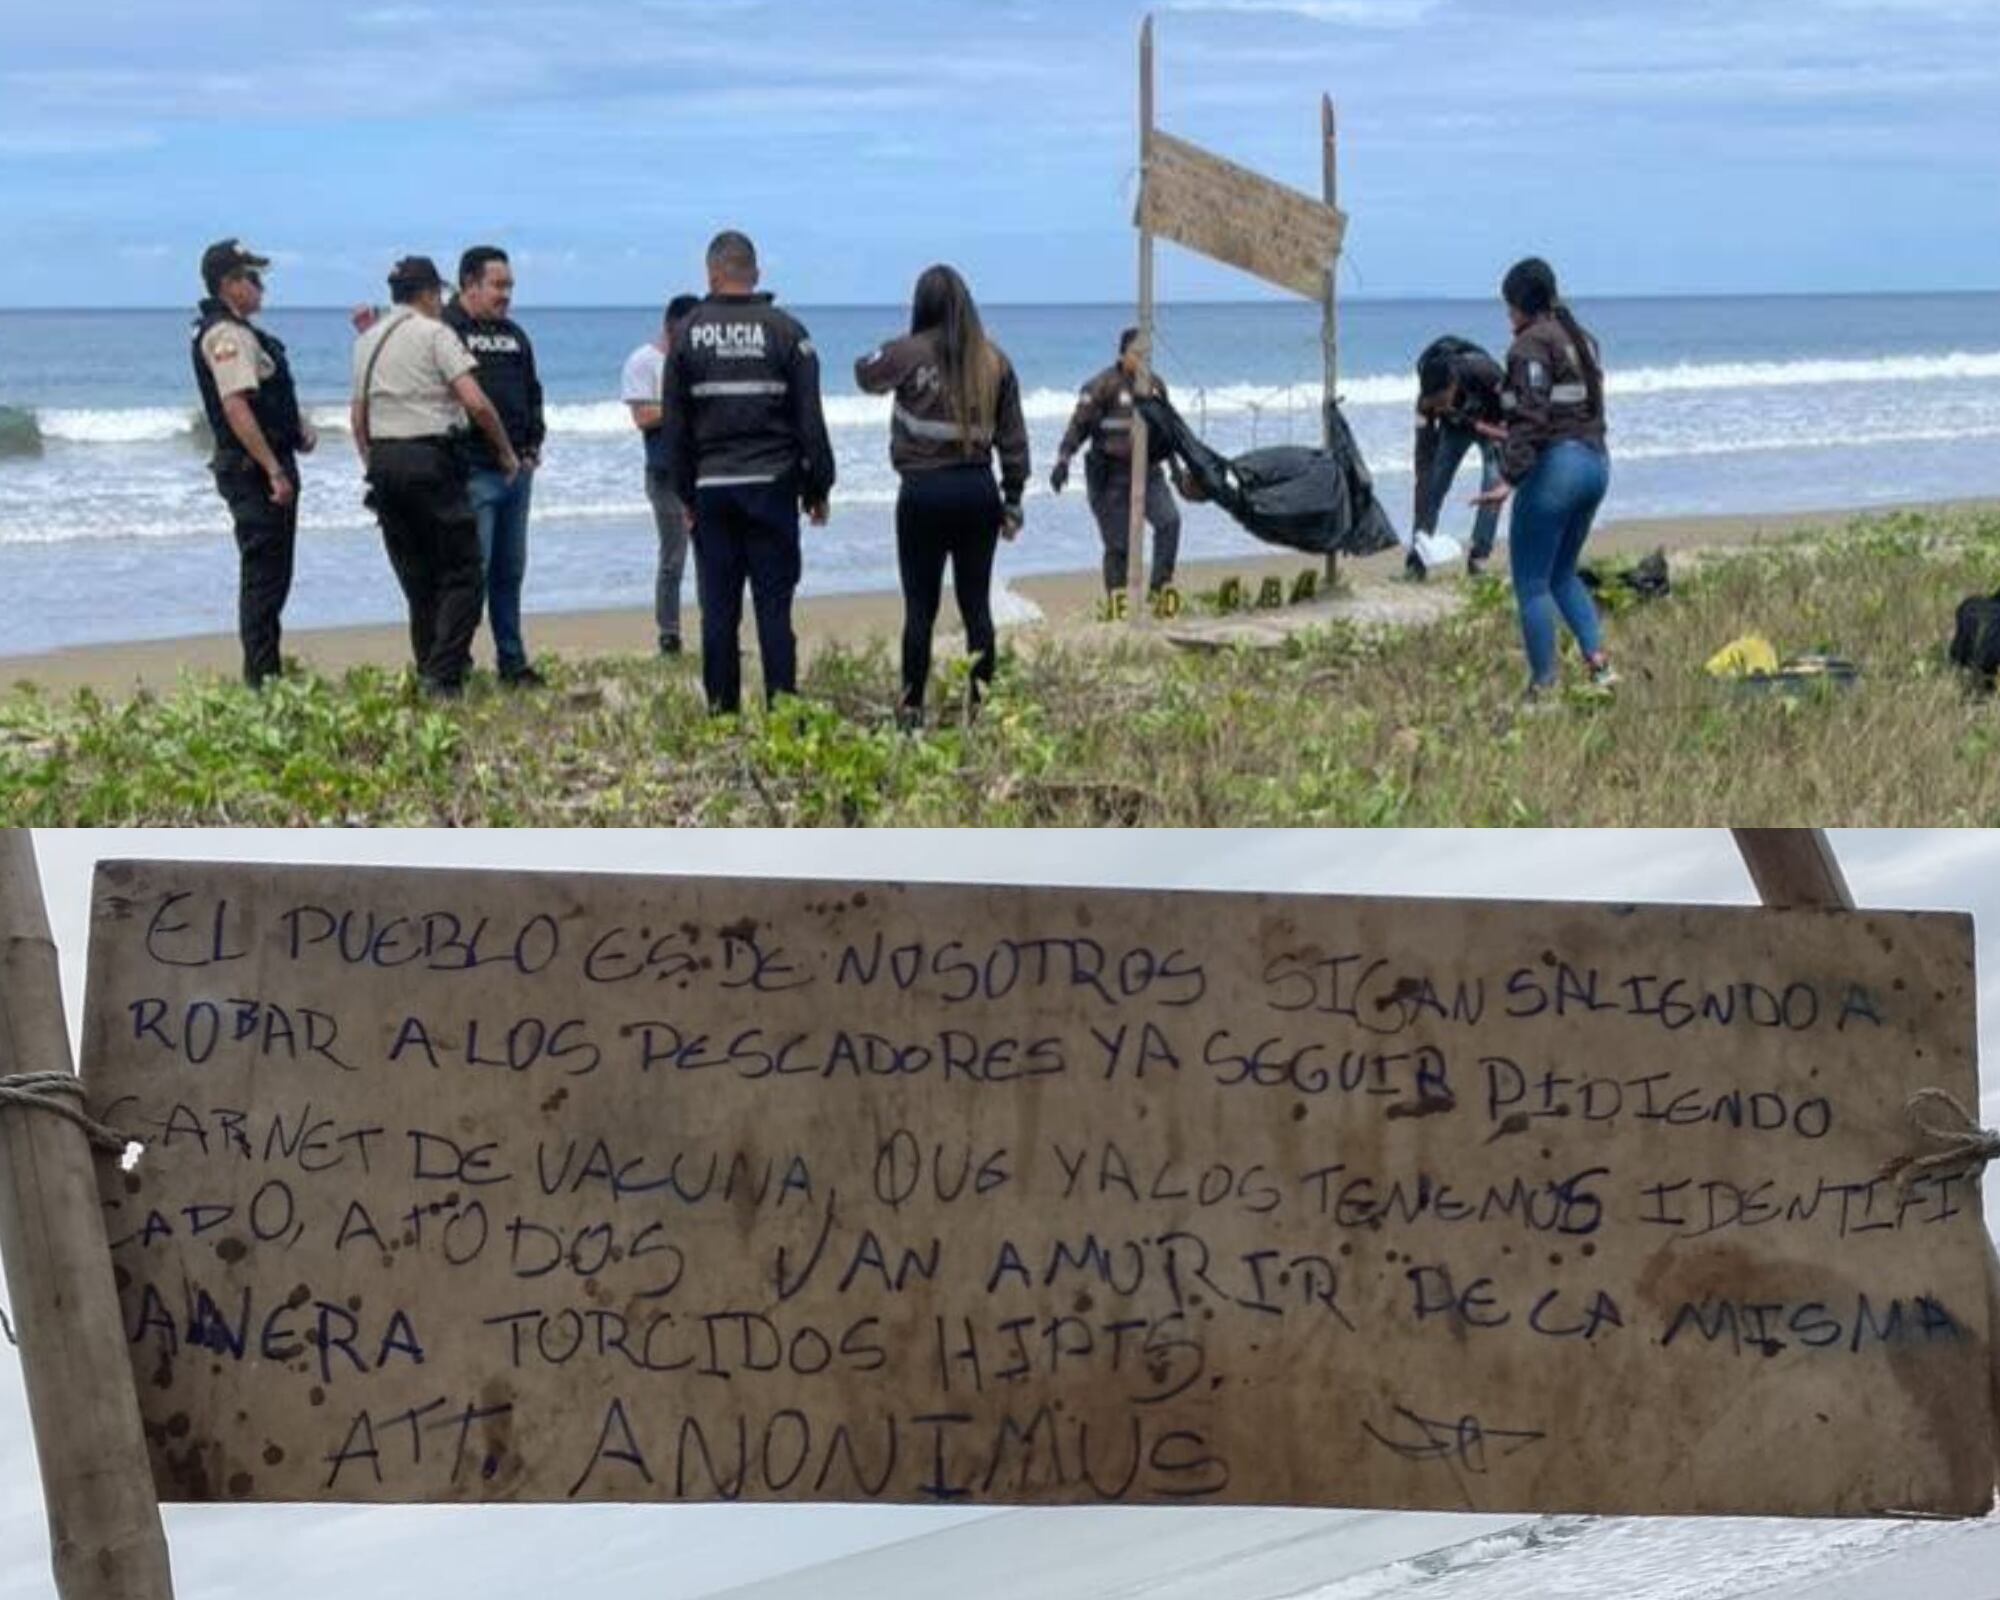 POLICIA
POLICIA
NACIONAL
EL PUEBLO ES DE NOSOTROS SIGAN SALIENDO A
ROBAR A LOS PESCADORES Y A SEGUIR PIDIENDO
CARNET DE VACUNA, QUE YA LOS TENEMOS IDENTIFI
CADO, A TODOS VAN AMORIR DE LA MISMA
ANERA TORCIDOS HJPTS.
ATT. ANONIMUS